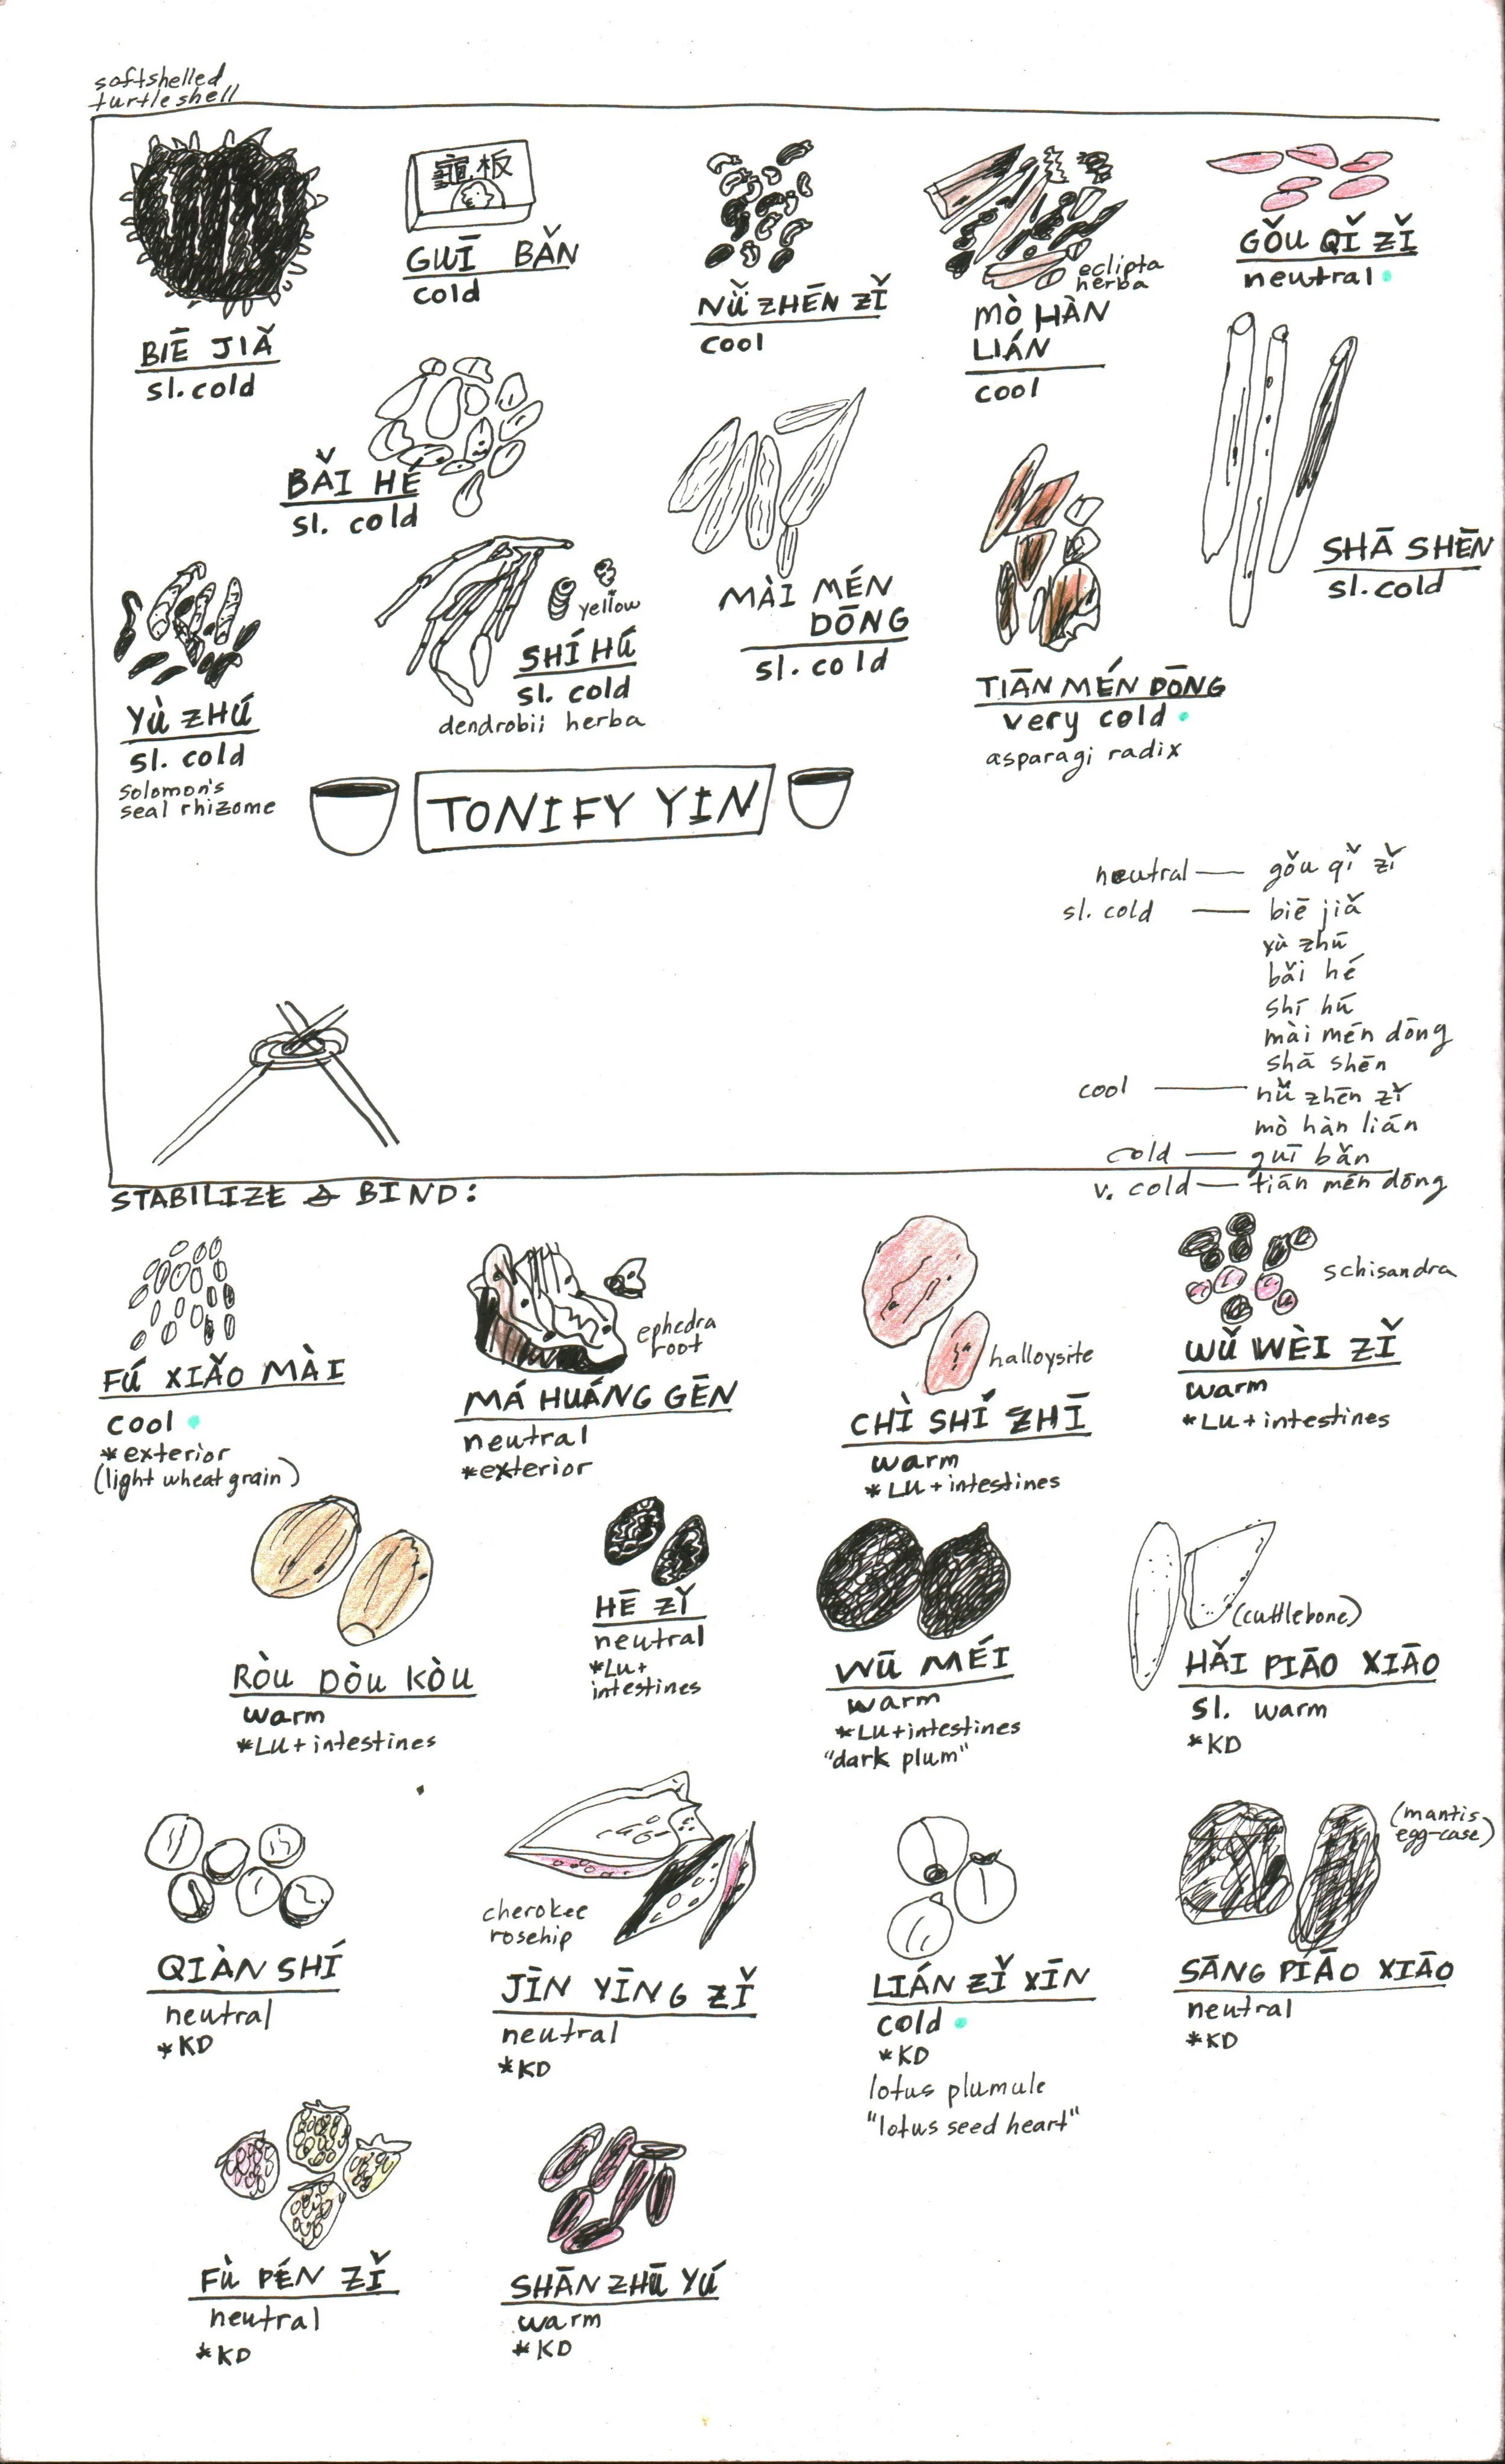 softshelled
turtle shell
龜板
BIĒ JIǍ
sl. cold
GUĪ BǍN
cold
NǙ ZHĒN ZǏ
cool
eclipta
herba
MÒ HÀN
LIÁN
cool
GǑU QǏ ZǏ
neutral
BǍI HÉ
sl. cold
MÀI MÉN
DŌNG
sl. cold
SHĀ SHĒN
sl. cold
YÙ ZHÚ
sl. cold
solomon's
seal rhizome
yellow
SHÍ HÚ
sl. cold
dendrobii herba
TIĀN MÉN DŌNG
very cold
asparagi radix
TONIFY YIN
neutral — gǒu qǐ zǐ
sl. cold — biē jiǎ
yù zhū
bǎi hé
shí hú
mài mén dōng
shā shēn
cool — nǚ zhēn zǐ
mò hàn lián
cold — guī bǎn
v. cold — tiān mén dōng
STABILIZE & BIND:
FÚ XIǍO MÀI
cool
*exterior
(light wheat grain)
ephedra
root
MÁ HUÁNG GĒN
neutral
*exterior
halloysite
CHÌ SHÍ ZHĪ
warm
*LU + intestines
schisandra
WǓ WÈI ZǏ
warm
*LU + intestines
RÒU DÒU KÒU
warm
*LU + intestines
HĒ ZǏ
neutral
*LU +
intestines
WŪ MÉI
warm
*LU + intestines
"dark plum"
(cuttlebone)
HǍI PIĀO XIĀO
sl. warm
*KD
QIÀN SHÍ
neutral
*KD
cherokee
rosehip
JĪN YĪNG ZǏ
neutral
*KD
LIÁN ZǏ XĪN
cold
*KD
lotus plumule
"lotus seed heart"
(mantis
egg-case)
SĀNG PIĀO XIĀO
neutral
*KD
FÙ PÉN ZǏ
neutral
*KD
SHĀN ZHŪ YÚ
warm
*KD